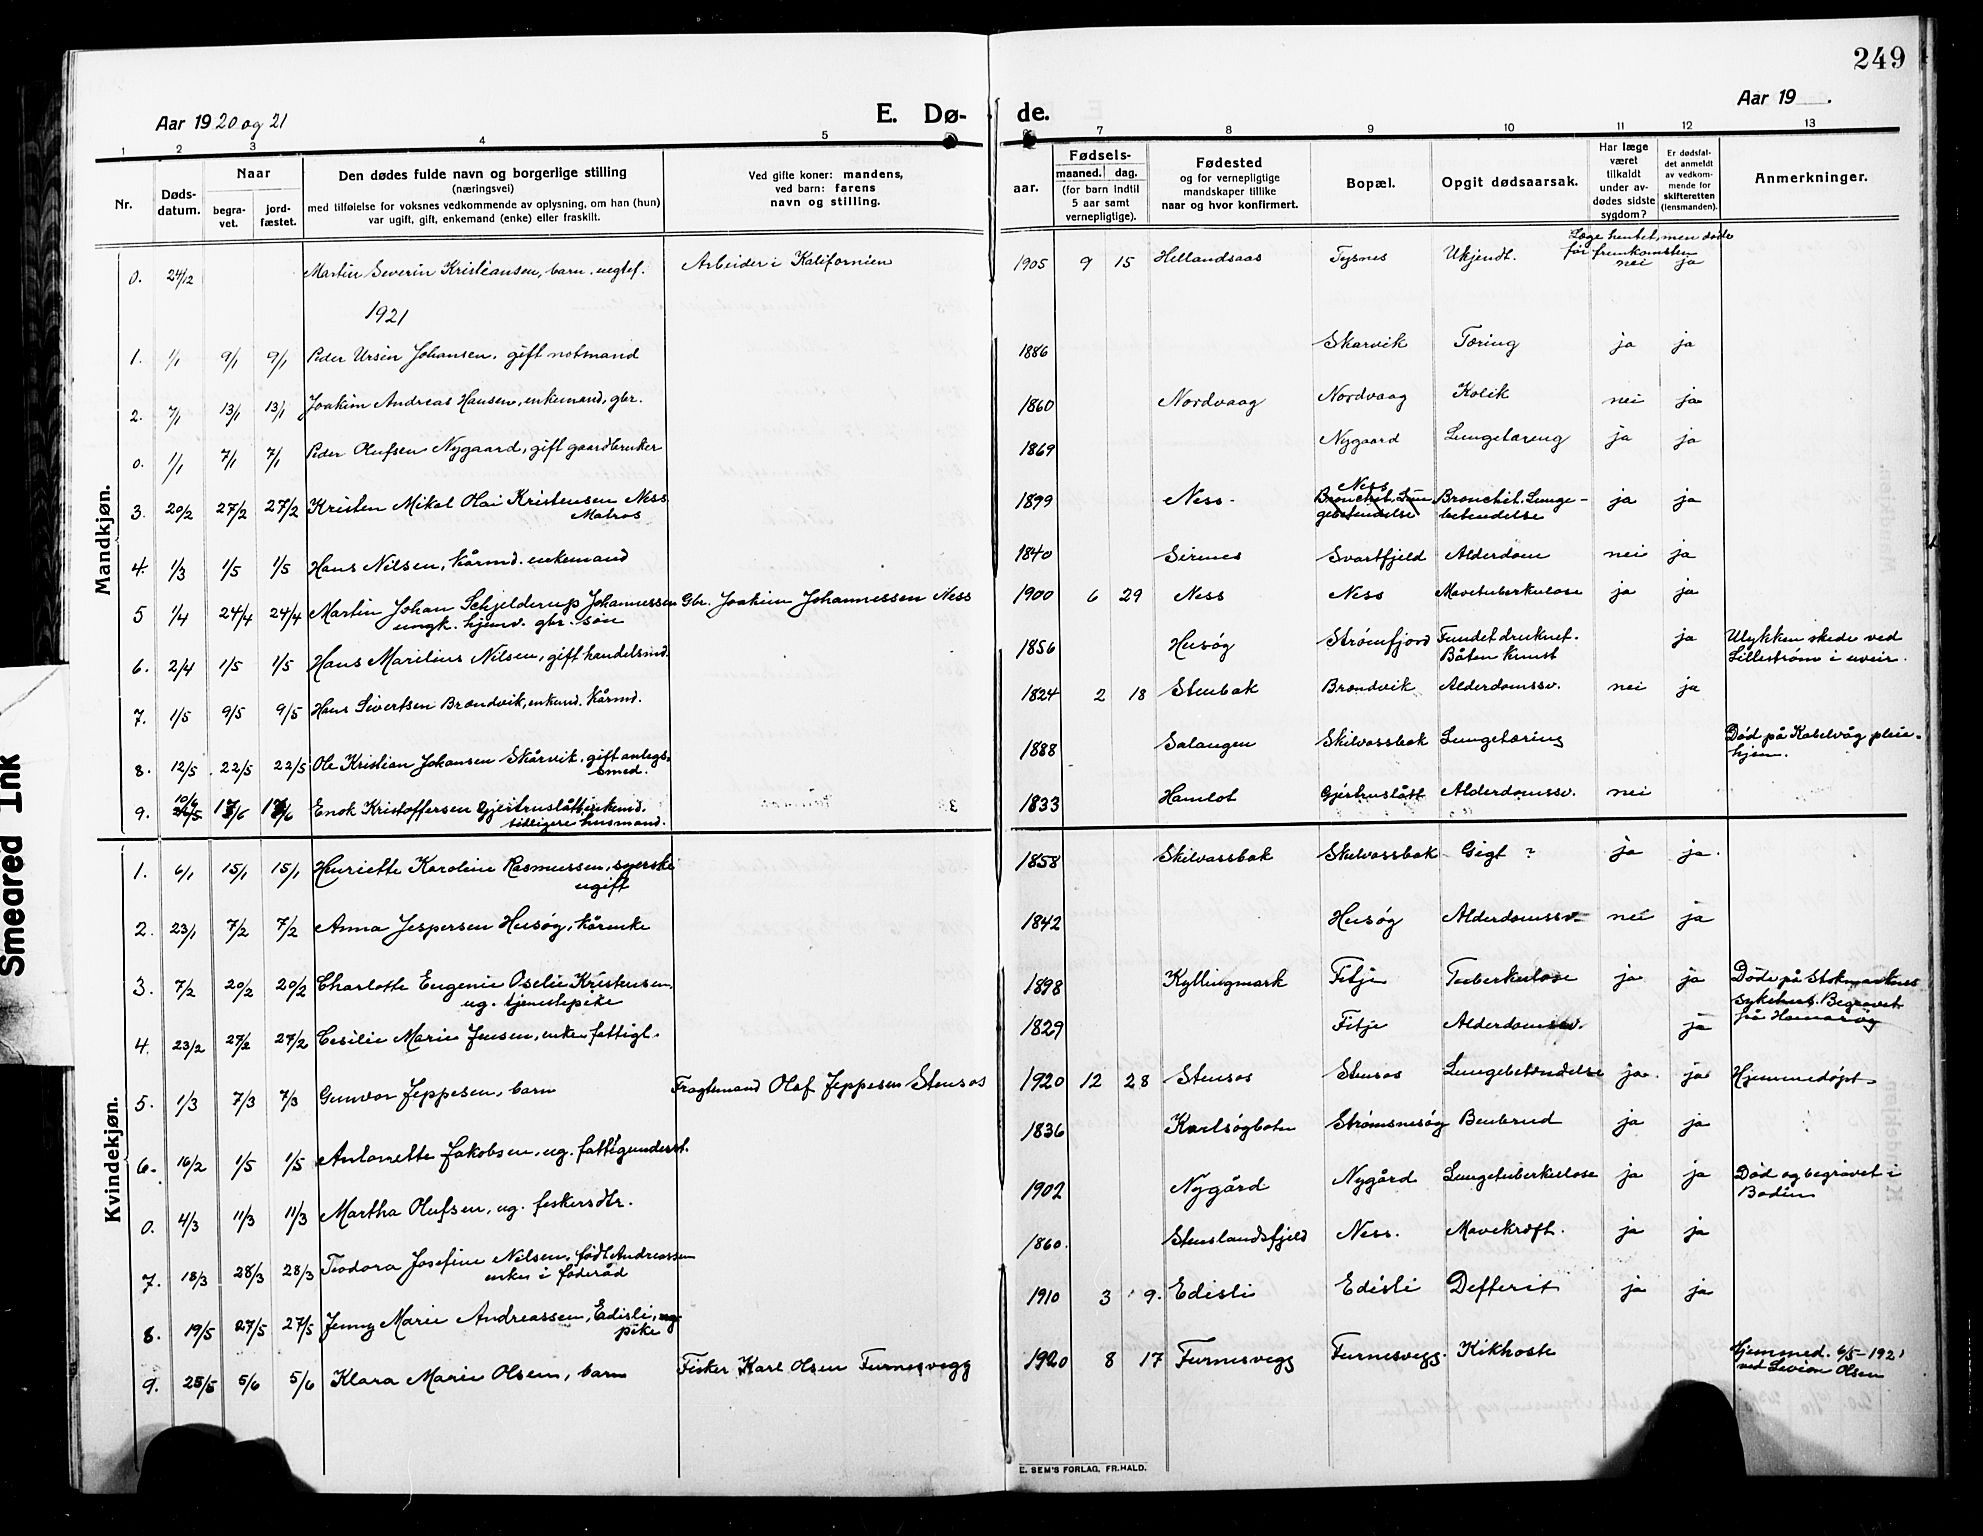 249
Aar 1920 og 21
E. Dø-
de.
Aar 19 .
1 2 3 4 5 6 7 8 9 10 11 12 13
Nr.
Døds-
datum.
Naar
begra-
vet.
jord-
fæstet.
Den dødes fulde navn og borgerlige stilling
(næringsvei)
med tilføielse for voksnes vedkommende av oplysning, om han (hun)
var ugift, gift, enkemand (enke) eller fraskilt.
Ved gifte koner: mandens,
ved barn: farens
navn og stilling.
aar.
Fødsels-
maaned. dag.
(for barn indtil
5 aar samt
vernepligtige).
Fødested
og for vernepligtige
mandskaper tillike
naar og hvor konfirmert.
Bopæl.
Opgit dødsaarsak.
Har læge
været
tilkaldt
under av-
dødes sidste
sygdom?
Er dødsfal-
det anmeldt
av vedkom-
mende for
skifteretten
(lensmanden).
Anmerkninger.
Mandkjøn.
0. 24/12 Martin Severin Kristiansen, barn. uegtef. Arbeider i Kalifornien 1905 9 15 Hellandsaas Tysnes Ukjendt. Læge hentet, men døde
før fremkomsten
nei ja
1921
1. 1/1 9/1 9/1 Peder Ursin Johansen, gift notmand 1886 Skarvik Tæring ja ja
2. 7/1 13/1 13/1 Joakim Andreas Hansen, enkemand, gbr. 1860 Nordvaag Nordvaag Kolik nei ja
0. 1/1 7/1 7/1 Peder Olufsen Nygaard, gift gaardbruker 1869 Nygaard Lungetæring ja ja
3. 20/2 27/2 27/2 Kristen Mikal Olai Kristensen Ness
Matros 1899 Ness. Ness
Bronchit. Lun
gebetendelse Bronchit. Lunge-
betendelse ja ja
4. 1/3 1/5 1/5 Hans Nilsen, kårmd. enkemand 1840 Sirnes Svartfjeld Alderdom nei ja
5 1/4 24/4 24/4 Martin Johan Schjelderup Johannessen
ungk. hjemv. gbr. søn Gbr. Joakim Johannessen Ness 1900 6 29 Ness Ness Mavetuberkulose ja ja
6. 2/4 1/5 1/5 Hans Marilius Nilsen, gift handelsmd. 1856 Husøy Strømfjord Fundet druknet.
Båten knust ja Ulykken skede ved
Lillestrøm i uveir.
7. 1/5 9/5 9/5 Hans Sivertsen Brændvik, enkmd. kårmd. 1824 2 18 Stenbak Brændvik Alderdomssv. nei ja
8. 12/5 22/5 22/5 Ole Kristian Johansen Skårvik, gift anlegs-
smed. 1888 Salangen Skilvassbak Lungetæring Død på Kabelvåg pleie-
hjem.
9. 10/6 /6 /6 Enok Kristoffersen Gjestruslått, enkmd.
tidligere husmand. 1833 Hamlot Gjestruslått Alderdomssv. nei
Kvindekjøn.
1. 6/1 15/1 15/1 Henriette Karoline Rasmussen, syerske
ugift 1858 Skilvassbak Skilvassbak Gigt ? ja ja.
2. 23/1 7/2 7/2 Anna Jespersen Husøy, kårenke 1842 Husøy Alderdomssv. nei ja
3. 7/2 20/2 20/2 Charlotte Eugenie Oselie Kristensen,
ug. tjenestepike 1898 Kyllingmark Fitje Tuberkulose ja ja Døde på Stokmarknes
sykehus. Begravet
på Hamarøy
4. 23/2 27/2 27/2 Cesilie Marie Jensen, enke fattigl. 1829 Fitje Alderdomssv. ja
5. 1/3 7/3 7/3 Gunvor Jeppesen, barn Fragtemand Olaf Jeppesen Stensos 1920 12 28 Stensos Stensos Lungebetændelse ja. ja Hjemmedøpt.
6. 16/2 1/5 1/5 Antonette Jakobsen, ug. fattigunderst. 1836 Karlsøgboten Strømsnesøg Benbrud ja ja
0. 4/3 11/3 11/3 Martha Olufsen, ug. fiskersdtr. 1902 Nygård Nygård Lungetuberkulose ja ja Død og begravet i
Bodin
7. 18/3 28/3 28/3 Teodora Josefine Nilsen, født Andreassen
enke i føderåd 1860. Stenslandsfjeld Ness. Mavekræft. ja ja
8. 19/5 27/5 27/5 Jenny Marie Andreassen, Edisli, ug
pike 1910 3 9. Edisli Edisli Defterit ja ja
9. 25/5 5/6 5/6 Klara Marie Olsen, barn Fisker Karl Olsen Furnesvegg 1920 8 17 Furnesvegg Furnesvegg. Kikhoste Hjemmed. 6/5-1921
ved Olsen
E. SEM'S FORLAG, FR.HALD.
Smeared Ink